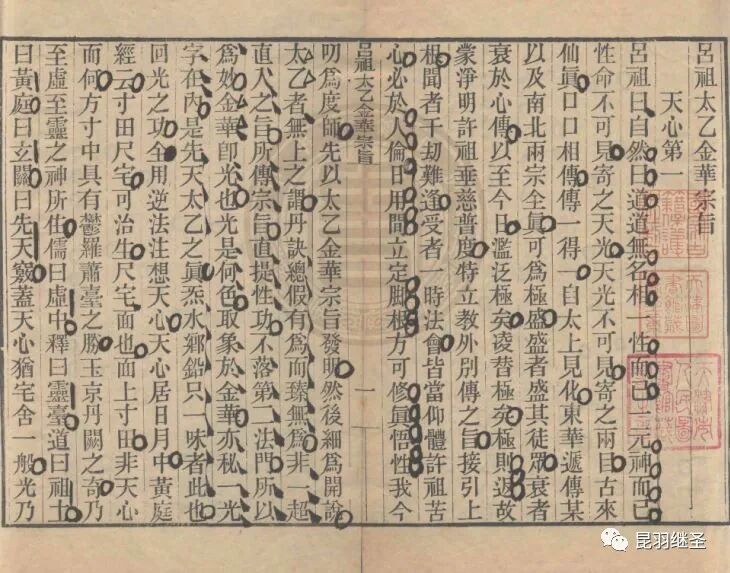 呂祖太乙金華宗旨
天心第一
呂祖曰自然曰道道無名相一性而已一元神而已
性命不可見寄之天光天光不可見寄之兩目古來
仙眞口口相傳傳一得一自太上見化東華遞傳某
以及南北兩宗全眞可爲極盛盛者盛其徒眾衰者
衰於心傳以至今日濫泛極矣凌替極矣極則返故
蒙淨明許祖垂慈普度特立教外別傳之旨接引上
根聞者千劫難逢受者一時法會皆當仰體許祖苦
心必於人倫日用間立定脚根方可修眞悟性我今
呂祖太乙金華宗旨
一
叨爲度師先以太乙金華宗旨發明然後細爲開說
太乙者無上之謂丹訣總假有爲而臻無爲非一超
直入之旨所傳宗旨直提性功不落第二法門所以
爲妙金華卽光也光是何色取象於金華亦秘一光
字在內是先天太乙之眞炁水鄉鉛只一味者此也
回光之功全用逆法注想天心天心居日月中黃庭
經云寸田尺宅可治生尺宅面也面上寸田非天心
而何方寸中具有鬱羅蕭臺之勝玉京丹闕之奇乃
至虛至靈之神所住儒曰虛中釋曰靈臺道曰祖土
曰黃庭曰玄關曰先天竅蓋天心猶宅舍一般光乃
昆羽继圣